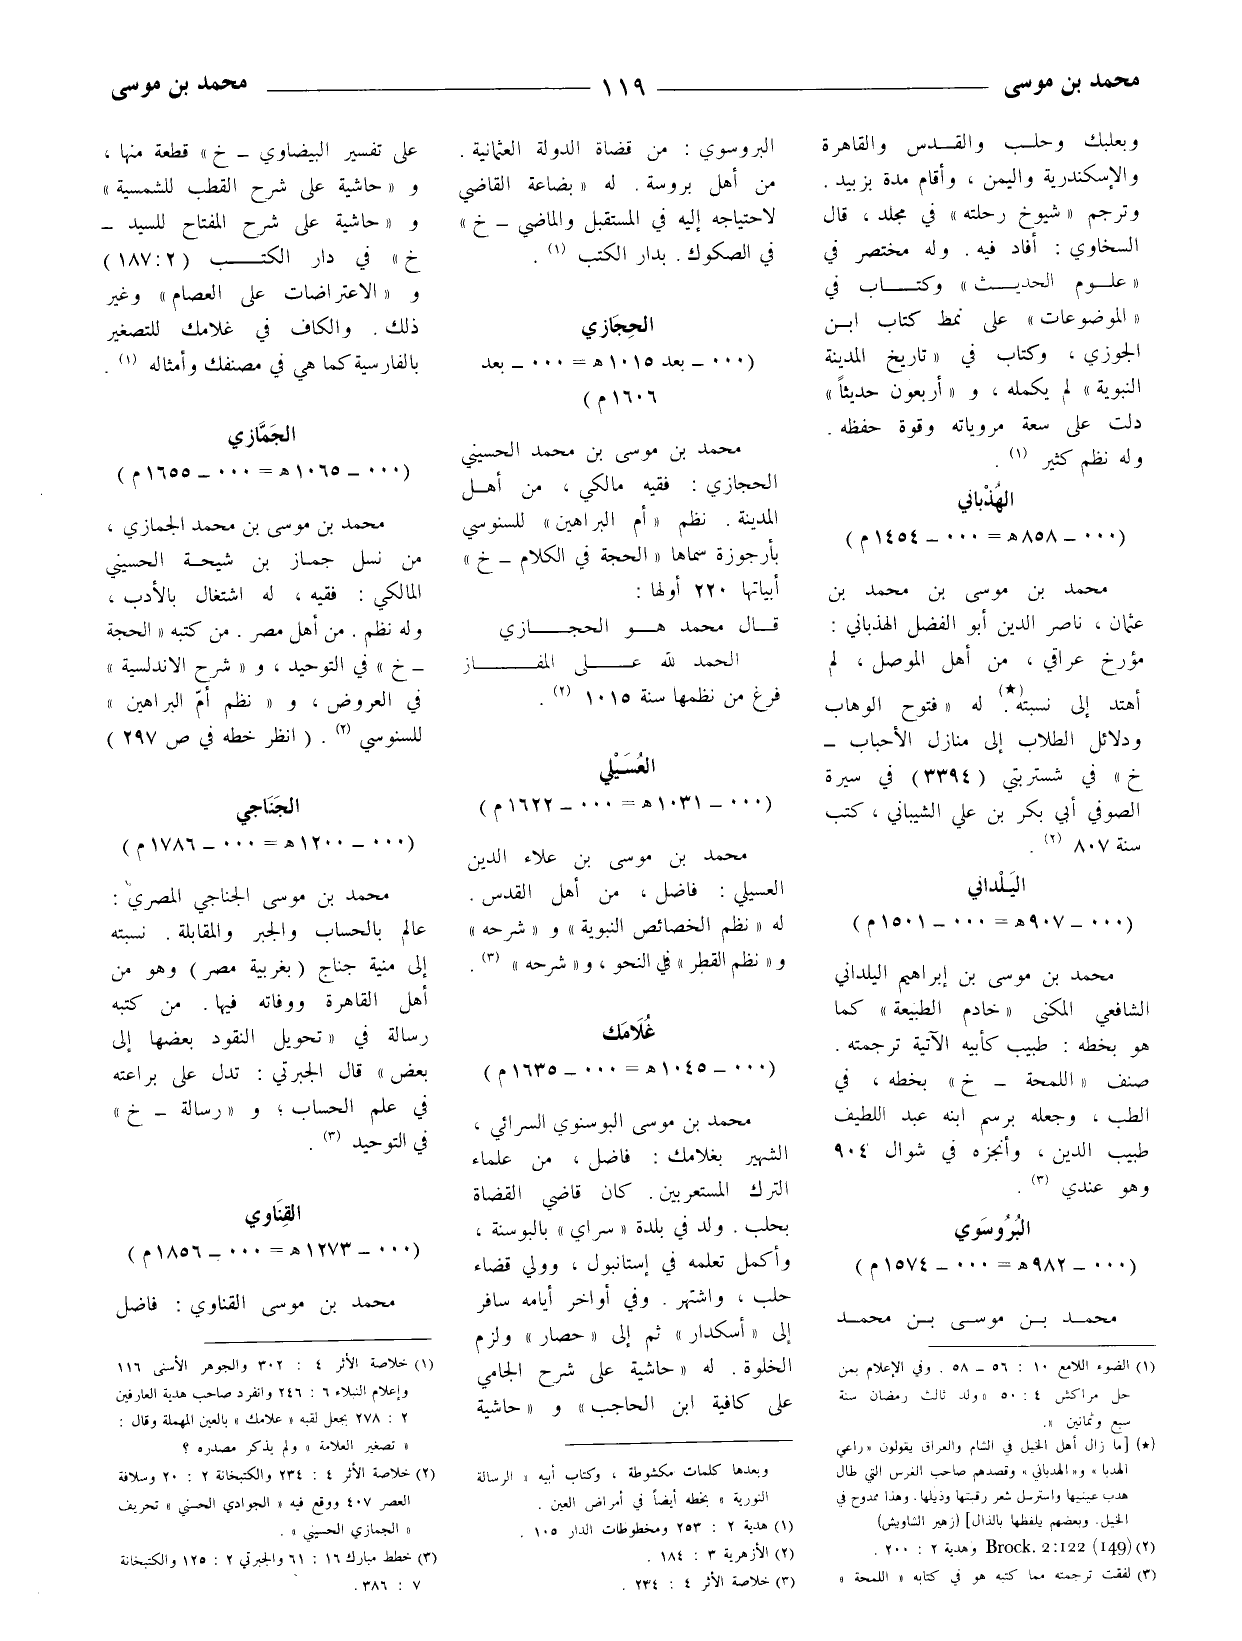 محمد بن موسى ١١٩ محمد بن موسى
وبعلبك وحلب والقدس والقاهرة
والإسكندرية واليمن ، وأقام مدة بزبيد .
وترجم « شيوخ رحلته » في مجلد ، قال
السخاوي : أفاد فيه . وله مختصر في
« علوم الحديث » وكتاب في
« الموضوعات » على نمط كتاب ابن
الجوزي ، وكتاب في « تاريخ المدينة
النبوية » لم يكمله ، و « أربعون حديثاً »
دلت على سعة مروياته وقوة حفظه .
وله نظم كثير (١) .
الهُذْباني
(٠٠٠ – ٨٥٨ ه = ٠٠٠ – ١٤٥٤ م)
محمد بن موسى بن محمد بن
عثمان ، ناصر الدين أبو الفضل الهذباني :
مؤرخ عراقي ، من أهل الموصل ، لم
أهتد إلى نسبته(★) . له « فتوح الوهاب
ودلائل الطلاب إلى منازل الأحباب –
خ » في شستربتي (٣٣٩٤) في سيرة
الصوفي أبي بكر بن علي الشيباني ، كتب
سنة ٨٠٧ (٢) .
اليَلْداني
(٠٠٠ – ٩٠٧ ه = ٠٠٠ – ١٥٠١ م)
محمد بن موسى بن إبراهيم اليلداني
الشافعي المكنى « خادم الطبيعة » كما
هو بخطه : طبيب كأبيه الآتية ترجمته .
صنف « اللمحة – خ » بخطه ، في
الطب ، وجعله برسم ابنه عبد اللطيف
طبيب الدين ، وأنجزه في شوال ٩٠٤
وهو عندي (٣) .
البُرُوسَوي
(٠٠٠ – ٩٨٢ ه = ٠٠٠ – ١٥٧٤ م)
محمد بن موسى بن محمد
(١) الضوء اللامع ١٠ : ٥٦ – ٥٨ . وفي الإعلام بمن
حل مراكش ٤ : ٥٠ « ولد ثالث رمضان سنة
سبع وثمانين » .
(★) [ما زال أهل الخيل في الشام والعراق يقولون « راعي
الهدبا » و « الهدباني » وقصدهم صاحب الفرس التي طال
هدب عينيها واسترسل شعر رقبتها وذيلها . وهذا ممدوح في
الخيل . وبعضهم يلفظها بالذال] (زهير الشاويش)
(٢) Brock. 2:122 (149) وهدية ٢ : ٢٠٠ .
(٣) لفقت ترجمته مما كتبه هو في كتابه « اللمحة »
البروسوي : من قضاة الدولة العثمانية .
من أهل بروسة . له « بضاعة القاضي
لاحتياجه إليه في المستقبل والماضي – خ »
في الصكوك . بدار الكتب (١) .
الحِجَازي
(٠٠٠ – بعد ١٠١٥ ه = ٠٠٠ – بعد
١٦٠٦ م)
محمد بن موسى بن محمد الحسيني
الحجازي : فقيه مالكي ، من أهل
المدينة . نظم « أم البراهين » للسنوسي
بأرجوزة سماها « الحجة في الكلام – خ »
أبياتها ٢٢٠ أولها :
قال محمد هو الحجازي
الحمد لله على المفاز
فرغ من نظمها سنة ١٠١٥ (٢) .
العُسَيْلي
(٠٠٠ – ١٠٣١ ه = ٠٠٠ – ١٦٢٢ م)
محمد بن موسى بن علاء الدين
العسيلي : فاضل ، من أهل القدس .
له « نظم الخصائص النبوية » و « شرحه »
و « نظم القطر » في النحو ، و « شرحه » (٣) .
غُلَامَك
(٠٠٠ – ١٠٤٥ ه = ٠٠٠ – ١٦٣٥ م)
محمد بن موسى البوسنوي السرائي ،
الشهير بغلامك : فاضل ، من علماء
الترك المستعربين . كان قاضي القضاة
بحلب . ولد في بلدة « سراي » بالبوسنة ،
وأكمل تعلمه في إستانبول ، وولي قضاء
حلب ، واشتهر . وفي أواخر أيامه سافر
إلى « أسكدار » ثم إلى « حصار » ولزم
الخلوة . له « حاشية على شرح الجامي
على كافية ابن الحاجب » و « حاشية
وبعدها كلمات مكشوطة ، وكتاب أبيه « الرسالة
النورية » بخطه أيضاً في أمراض العين .
(١) هدية ٢ : ٢٥٣ ومخطوطات الدار ١٠٥ .
(٢) الأزهرية ٣ : ١٨٤ .
(٣) خلاصة الأثر ٤ : ٢٣٤ .
على تفسير البيضاوي – خ » قطعة منها ،
و « حاشية على شرح القطب للشمسية »
و « حاشية على شرح المفتاح للسيد –
خ » في دار الكتب (٢ : ١٨٧)
و « الاعتراضات على العصام » وغير
ذلك . والكاف في غلامك للتصغير
بالفارسية كما هي في مصنفك وأمثاله (١) .
الجَمَّازي
(٠٠٠ – ١٠٦٥ ه = ٠٠٠ – ١٦٥٥ م)
محمد بن موسى بن محمد الجمازي ،
من نسل جماز بن شيحة الحسيني
المالكي : فقيه ، له اشتغال بالأدب ،
وله نظم . من أهل مصر . من كتبه « الحجة
– خ » في التوحيد ، و « شرح الاندلسية »
في العروض ، و « نظم أمّ البراهين »
للسنوسي (٢) . ( انظر خطه في ص ٢٩٧ )
الجَنَاجي
(٠٠٠ – ١٢٠٠ ه = ٠٠٠ – ١٧٨٦ م)
محمد بن موسى الجناجي المصري :
عالم بالحساب والجبر والمقابلة . نسبته
إلى منية جناج ( بغربية مصر ) وهو من
أهل القاهرة ووفاته فيها . من كتبه
رسالة في « تحويل النقود بعضها إلى
بعض » قال الجبرتي : تدل على براعته
في علم الحساب ؛ و « رسالة – خ »
في التوحيد (٣) .
القِنَاوي
(٠٠٠ – ١٢٧٣ ه = ٠٠٠ – ١٨٥٦ م)
محمد بن موسى القناوي : فاضل
(١) خلاصة الأثر ٤ : ٣٠٢ والجوهر الأسنى ١١٦
وإعلام النبلاء ٦ : ٢٤٦ وانفرد صاحب هدية العارفين
٢ : ٢٧٨ بجعل لقبه « علامك » بالعين المهملة وقال :
« تصغير العلامة » ولم يذكر مصدره ؟
(٢) خلاصة الأثر ٤ : ٢٣٤ والكتبخانة ٢ : ٢٠ وسلافة
العصر ٤٠٧ ووقع فيه « الجوادي الحسني » تحريف
« الجمازي الحسيني » .
(٣) خطط مبارك ١٦ : ٦١ والجبرتي ٢ : ١٢٥ والكتبخانة
٧ : ٣٨٦ .